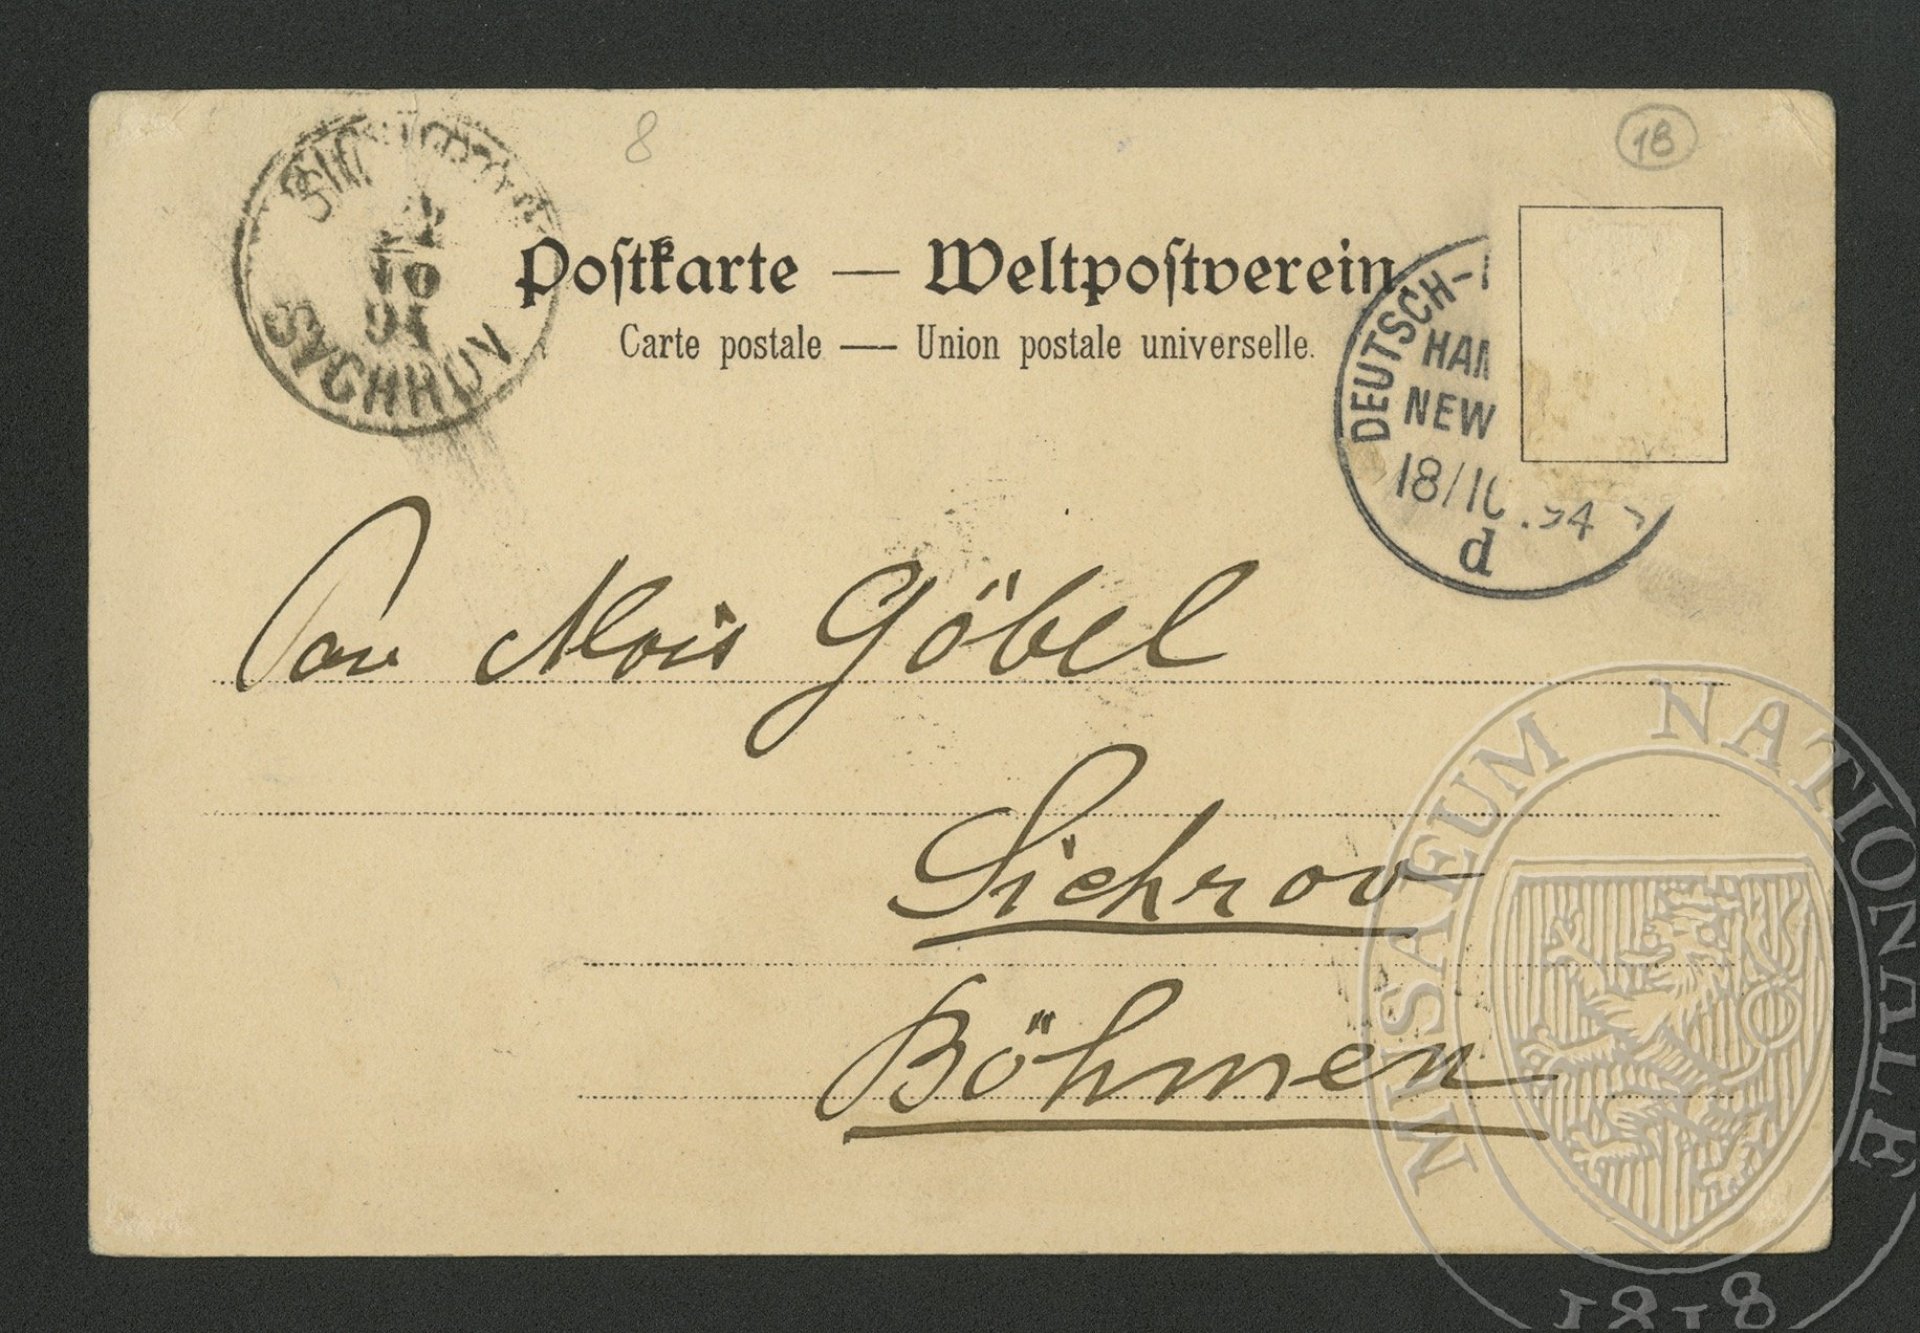 8
18
SYCHROV
22
10
94
Postkarte — Weltpostverein
Carte postale — Union postale universelle.
DEUTSCH-
HAM
NEW
18/10 94
d
Pan Alois Göbel
Sichrov
Böhmen
MUSAEUM NATIONALE
1818